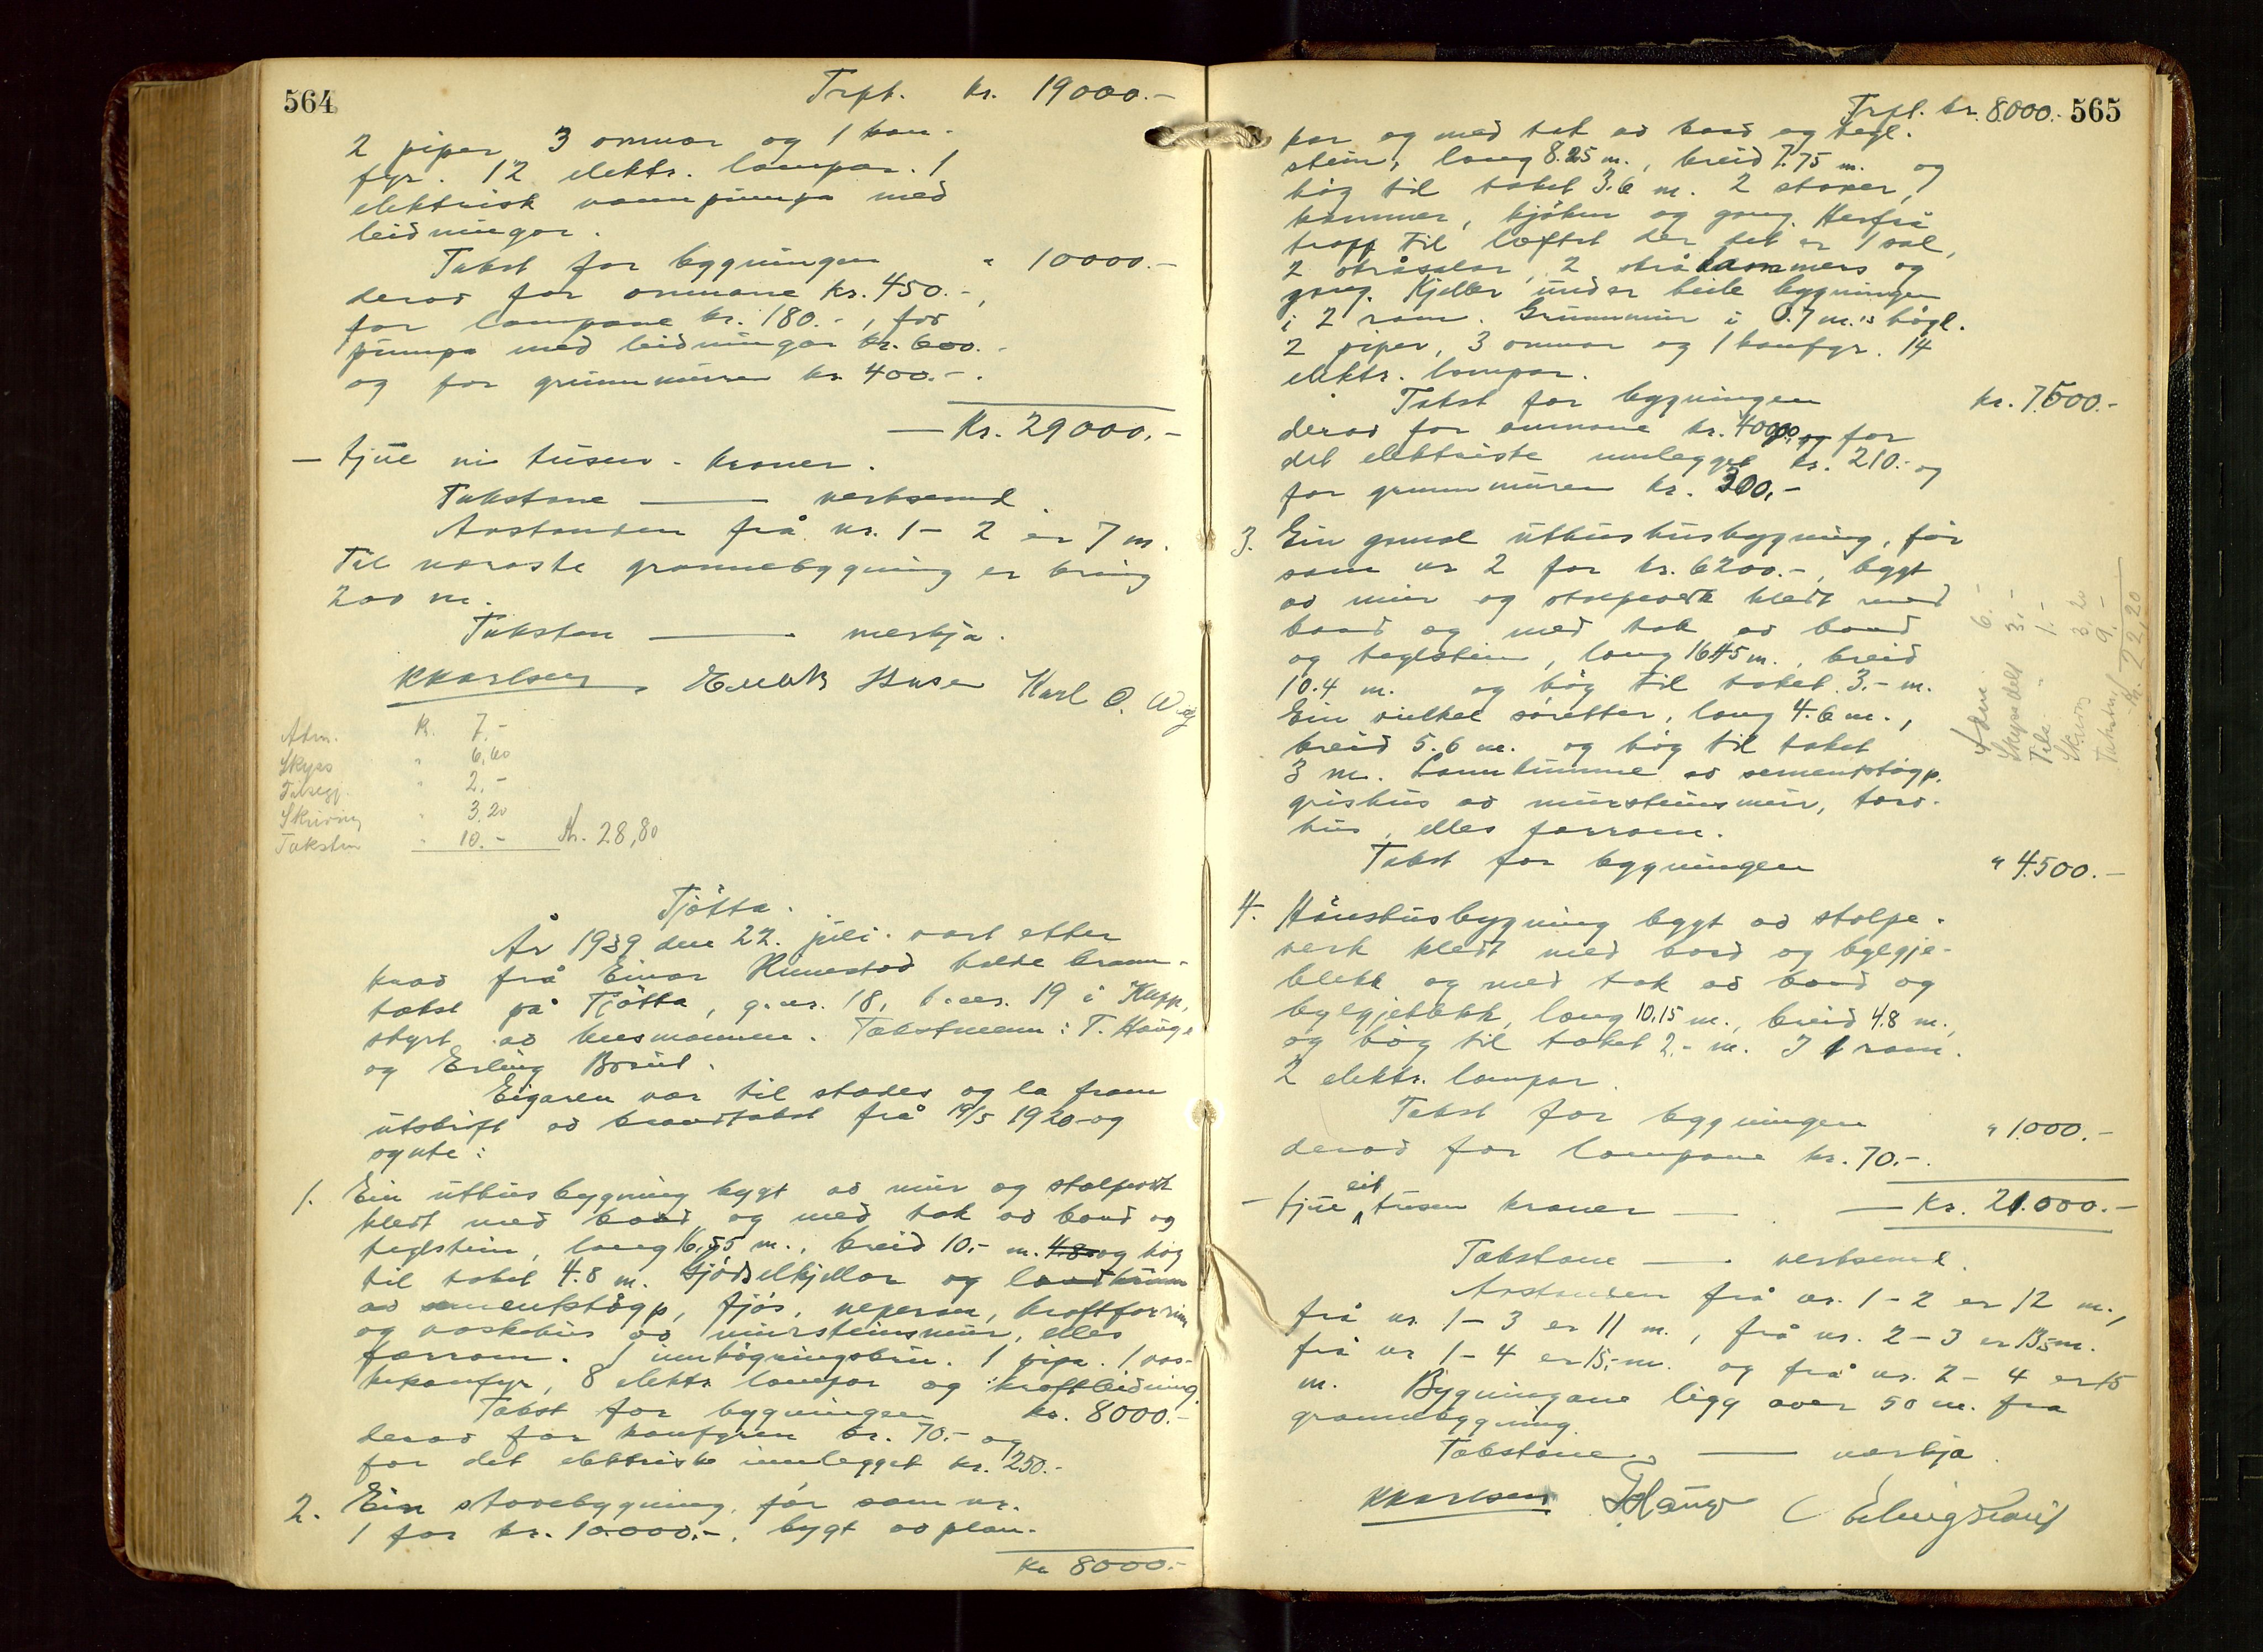 564
Trpt. kr. 19000.-
2 piper 3 omnar og 1 kom-
fyr. 12 elektr. lampar. 1
elektrisk vannpumpa med
leidningar.
Takst for bygningen " 10000.-
derav for omnane kr. 450.-,
for lampane kr. 180.-, for
pumpa med leidningar kr. 600.-
og for grunnmuren kr. 400.-.
— Kr. 29000.-
— tjue ni tusen - kroner.
Takstane — verksemd.
Avstanden frå nr. 1 - 2 er 7 m.
Til næraste grannebygning er kring
200 m.
Takstan — merkja.
KKarlsen, Henrik Husa Karl O.
Adm. Kr. 7.-
Skyss " 6,60
Tilsegj. " 2.-
Skriving " 3.20
Takstm " 10.- Kr. 28,80
Tjøtta.
År 1939 den 22. juli vart etter
krav frå Einar Runestad halde brann-
takst på Tjøtta, g.nr. 18, b.nr. 19 i Klepp,
styrt av lensmannen. Takstmenn: T. Hauge
og Erling Braut.
Eigaren var til stades og la fram
utskrift av branntakst frå 19/5 1920 og
synte:
1. Ein uthusbygning bygt av mur og stolpeverk
kledt med bord og med tak av bord og
teglstein, lang 16,55 m., breid 10,- m. 4.8 og høg
til taket 4.8 m. Gjødselkjellar og landkumme
av sementstøyp, fjøs, neperom, kraftforrom
og vaskehus av mursteinsmur, elles
forrom. 1 innkøyringsbru. 1 pipe. 1 vas-
kekomfyr, 8 elektr. lampar og kraftleidning.
Takst for bygningen kr. 8000.-
derav for komfyren kr. 70.- og
for det elektriske innlegget kr. 250.-
2. Ein stovebygning, før som nr.
1 for kr. 10.000.-, bygt av plan-
Kr 8000.-
Trpt. kr. 8000.- 565
kar og med tak av bord og tegl-
stein, lang 8.25 m., breid 7.75 m. og
høg til taket 3.6 m. 2 stover,
kammer, kjøken og gang. Herfrå
trapp til loftet der det er 1 sal,
2 skråsalar, 2 skråkammers og
gang. Kjellar under heile bygningen
i 2 rom. Grunnmur i 0.7 m.'s høgd.
2 piper, 3 omnar og 1 komfyr. 14
elektr. lampar.
Takst for bygningen kr. 7.500.-
derav for omnane kr. 400.-, og for
det elektriske innlegget kr. 210.- og
for grunnmuren kr. 300.-
3. Ein gamal uthushusbygning, før
som nr 2 for kr. 6200.-, bygt
av mur og stolpeverk kledt med
bord og med tak av bord
og teglstein, lang 16.45 m., breid
10.4 m. og høg til taket 3.- m.
Ein vinkel søretter, lang 4.6 m.,
breid 5.6 m. og høg til taket
3 m. Lannkumme av sementstøyp,
grishus av mursteinsmur, torv-
hus, elles forrom.
Takst for bygningen " 4.500.-
4. Hønshusbygning bygt av stolpe-
verk kledt med bord og bylgje-
blekk og med tak av bord og
bylgjeblekk, lang 10.15 m., breid 4.8 m.,
og høg til taket 2.- m. I 1 rom.
2 elektr. lampar.
Takst for bygningen " 1.000.-
derav for lampane kr. 70.-.
— tjue eit tusen kroner — — Kr. 21.000.-
Takstane — verksemd.
Avstanden frå nr. 1 - 2 er 12 m.,
frå nr. 1 - 3 er 11 m., frå nr. 2 - 3 er 13,5 m.
frå nr 1 - 4 er 15,- m. og frå nr. 2 - 4 er 15
m. Bygningane ligg over 50 m. fra
grannebygning.
Takstane — merkja.
KKarlsen T Hauge Erling Braut
Adm. 6.-
Skyssdelt 3.-
Tils. " 1.-
Skriving 3,20
Takstm 9.-
Kr. 22,20